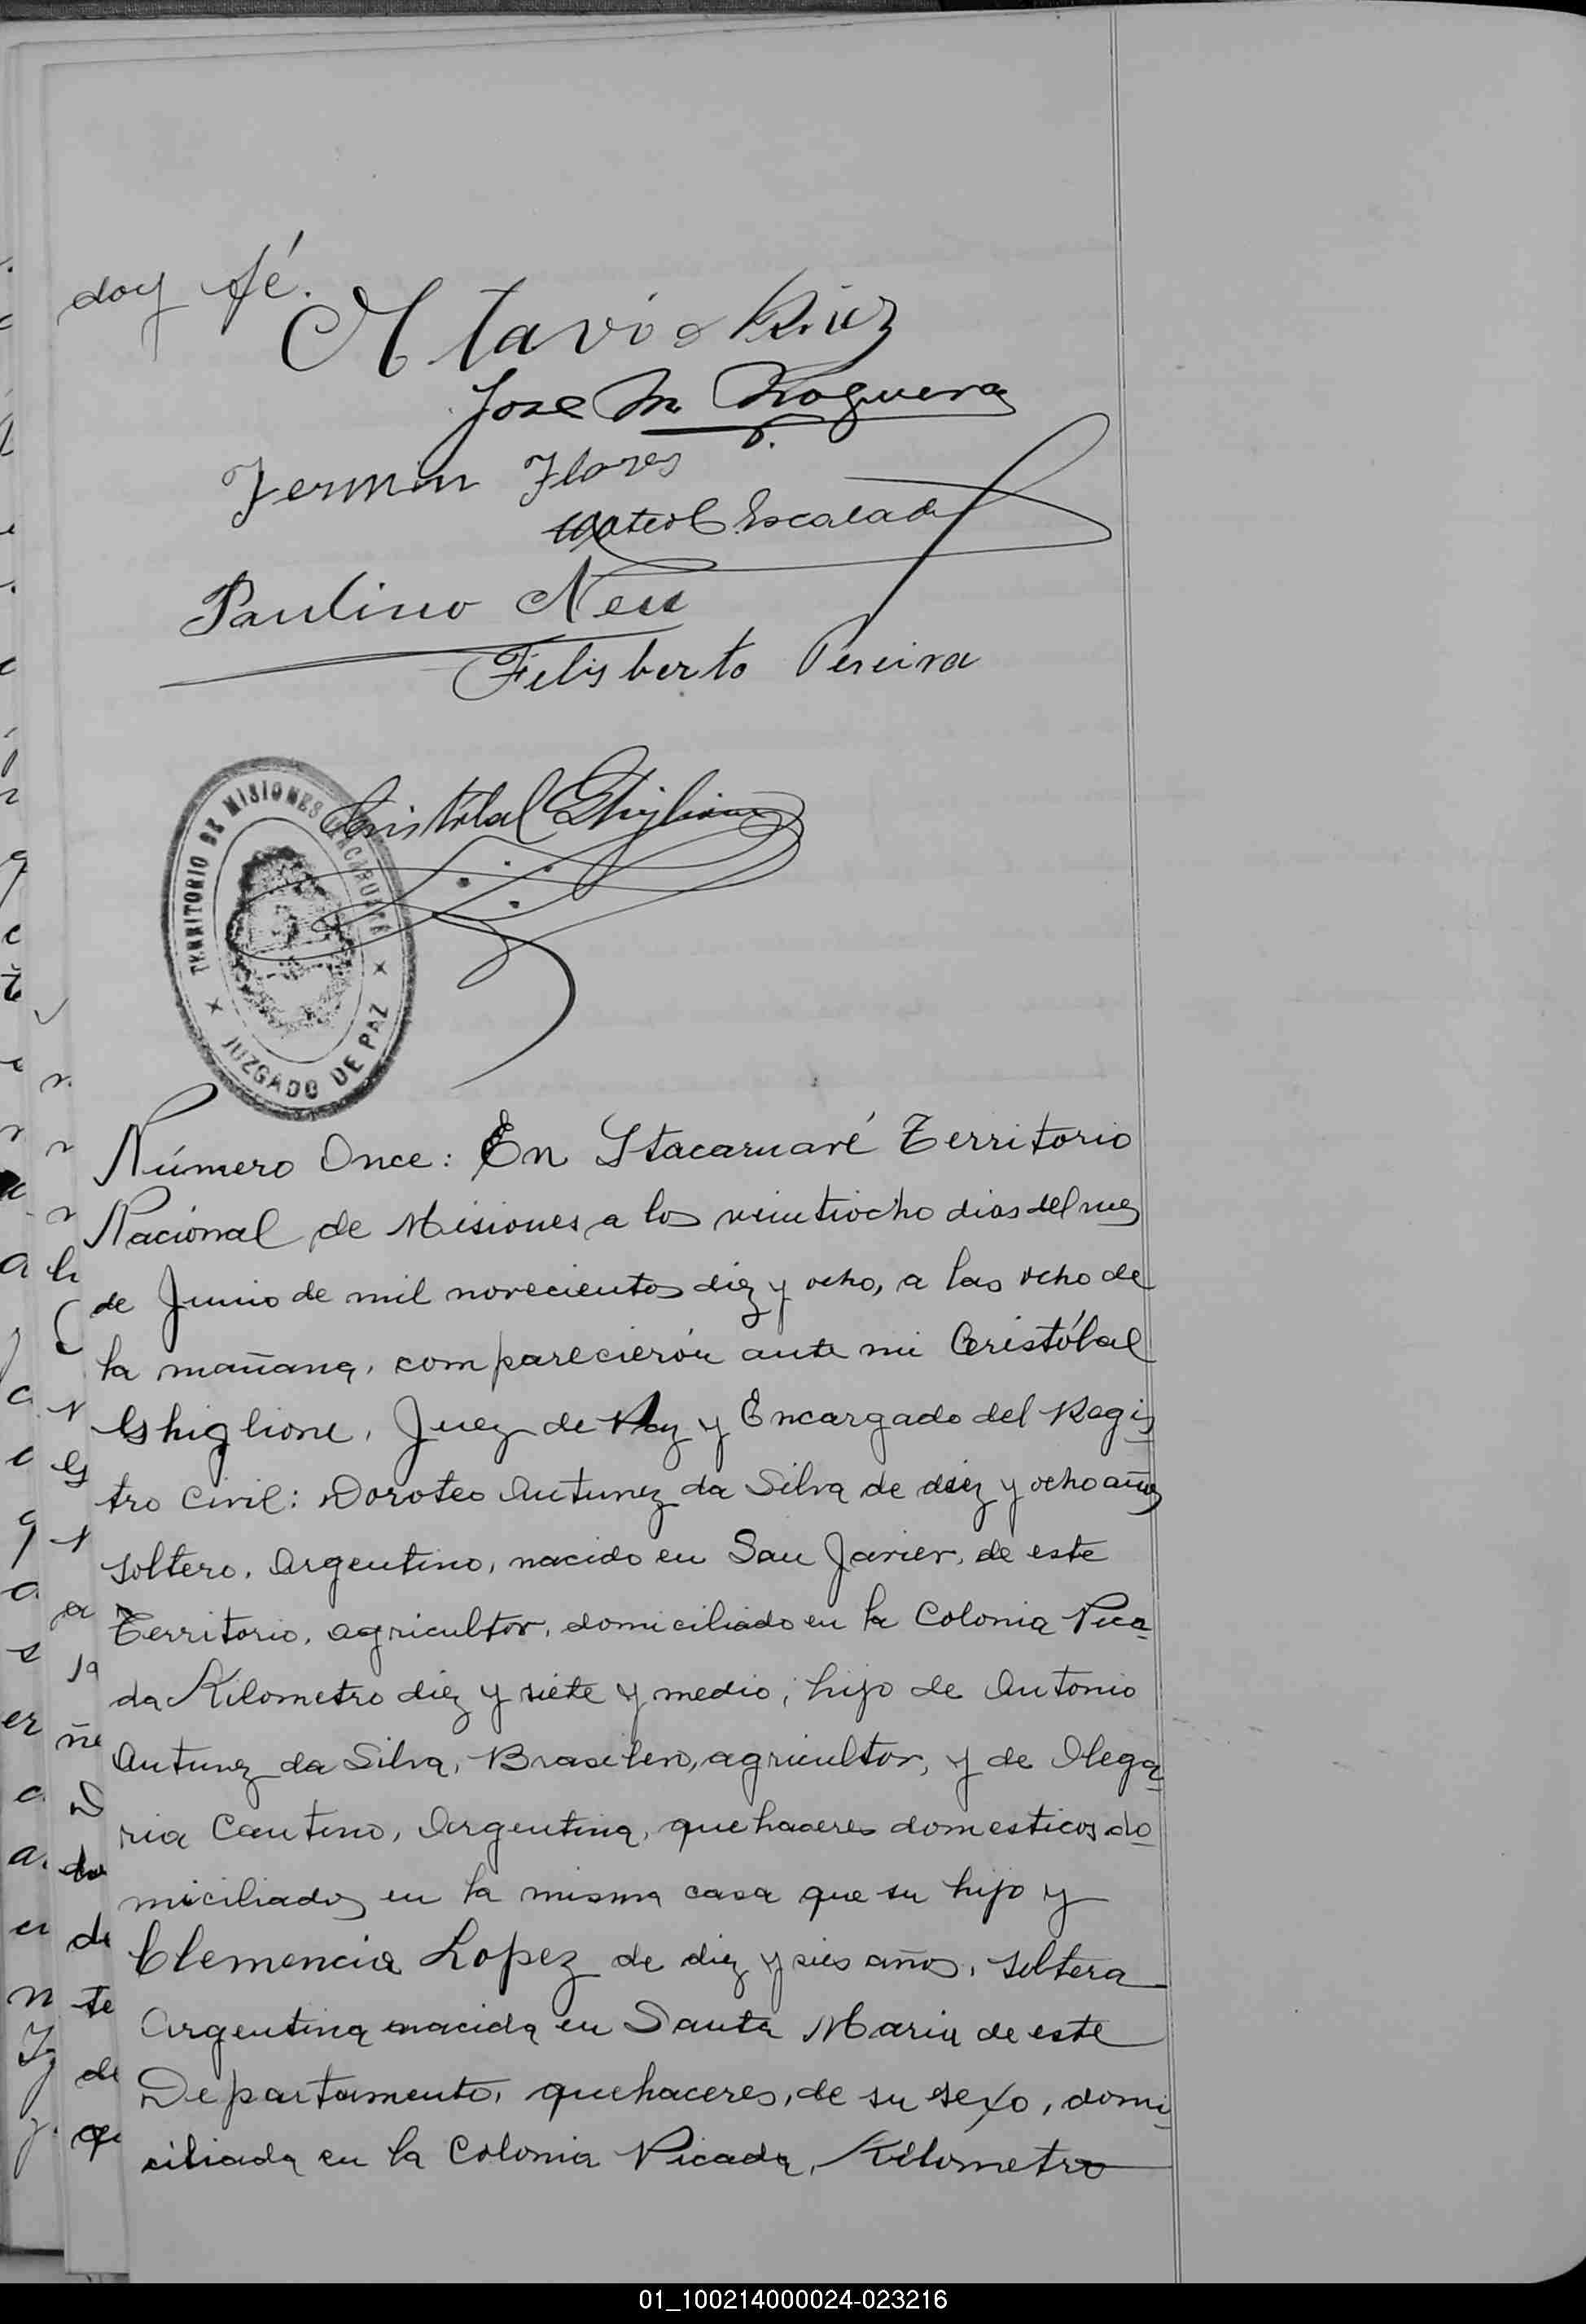 doy fé.
Otavio Ruiz
Jose M Noguera
Fermin Flores
Escalada
Paulino Neu
Felisberto Pereira
Cristóbal Ghiglione
TERRITORIO DE MISIONES ITACARUARÉ
JUZGADO DE PAZ
Número Once: En Itacaruaré Territorio
Nacional de Misiones a los veintiocho dias del mes
de Junio de mil novecientos diez y ocho, a las ocho de
la mañana, comparecierón ante mi Cristóbal
Ghiglione, Juez de Paz y Encargado del Regis
tro Civil: Doroteo Antunez da Silva de diez y ocho años
soltero, Argentino, nacido en San Javier, de este
Territorio, agricultor, domiciliado en la Colonia Pica
da Kilometro diez y siete y medio, hijo de Antonio
Antunez da Silva, Brasilero, agricultor, y de Olega
ria Cantero, Argentina, quehaceres domesticos do
miciliados en la misma casa que su hijo y
Clemencia Lopez de diez y seis años, soltera
Argentina nacida en Santa Maria de este
Departamento, quehaceres, de su sexo, domi
ciliada en la Colonia Picada, Kilometro
01_100214000024-023216